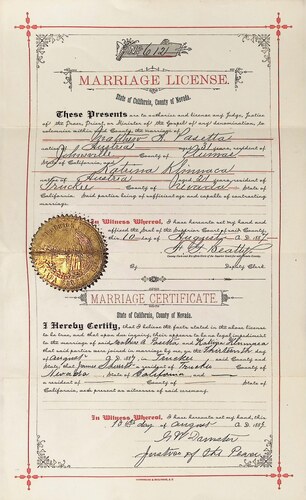 No 6121
MARRIAGE LICENSE.
State of California, County of Nevada.
These Presents are to authorize and license any Judge, Justice
of the Peace, Priest, or Minister of the Gospel of any denomination, to
solemnize within said County, the marriage of
Matthew A. Pasetta
native of Austria aged 28 years, resident of
Johnsville County of Plumas
State of California, and
Katrina Klennaca
native of Austria aged years, resident of
Truckee County of Nevada State of
California. Said parties being of sufficient age and capable of contracting
marriage.
In Witness Whereof, I have hereunto set my hand and
affixed the Seal of the Superior Court of said County,
this 10 day of August A. D. 1889
Beatty
Deputy Clerk.
MARRIAGE CERTIFICATE.
State of California, County of Nevada.
I Hereby Certify, that I believe the facts stated in the above license
to be true, and that upon due inquiry, there appears to be no legal impediment
to the marriage of said
that said parties were joined in marriage by me, on the day
of August A. D. 1889, in Truckee said County and
State; that James a resident of Truckee County of
Nevada State of California and
a resident of County of State of
California, each present as witnesses of said ceremony.
In Witness Whereof, I have hereunto set my hand, this
day of August A. D. 1889.
Justice of the Peace